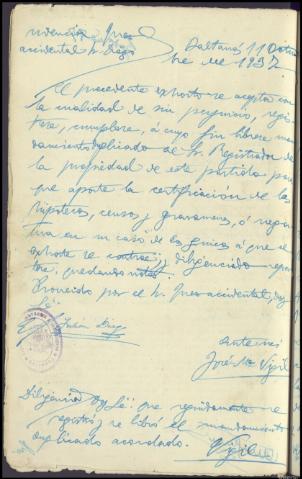 Providencia Juez
accidental Sr. Diez
Baltanás 11 Octu-
bre de 1937.
El precedente exhorto se acepta con
la cualidad de sin perjuicio, regis-
trese, cumplase, á cuyo fin librese man-
damiento duplicado al Sr. Registrador de
la propiedad de este partido para
que aporte la certificación de las
hipotecas, censos y gravamenes, ó nega-
tiva en su caso de las fincas á que el
exhorto se contrae; y diligenciado repor-
tese, quedando nota.
Proveido por el Sr. Juez accidental, doy
fé.
Julián Diez
Ante mi
José Mª Vigil
Diligencia Doy fé: que seguidamente se
registró y se libró el mandamiento
duplicado acordado.
Vigil